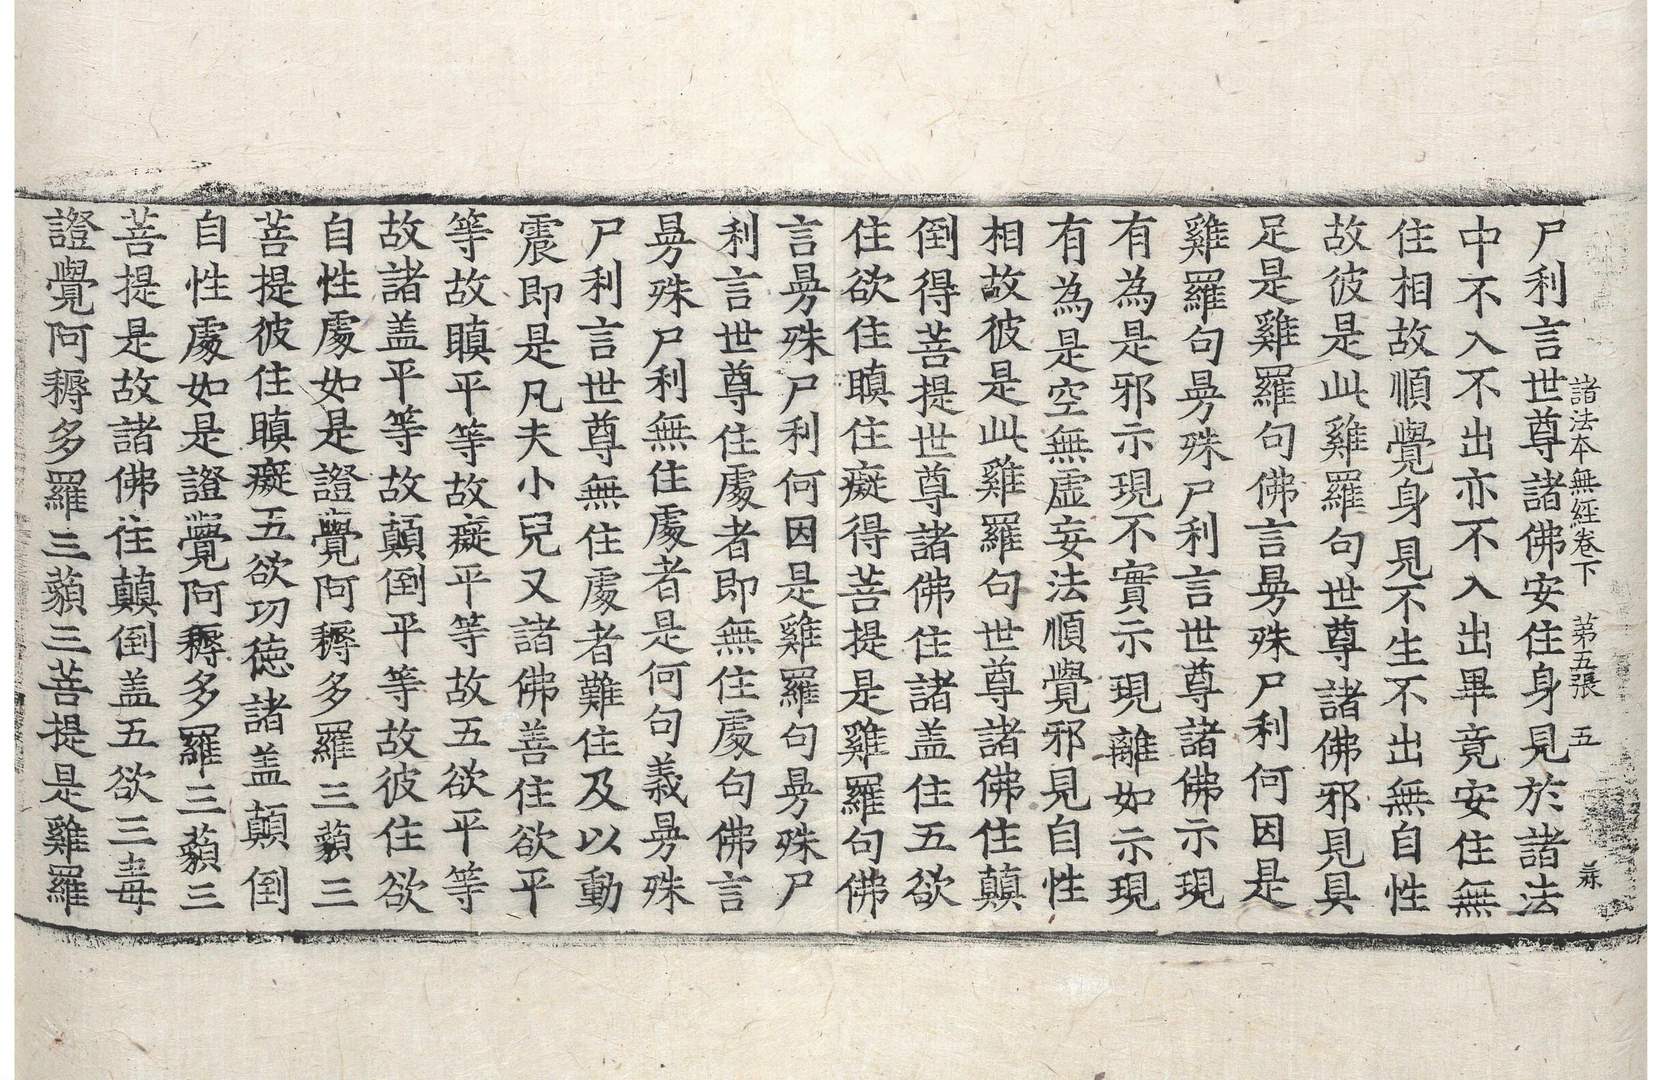 諸法本無經卷下 第五張 五 菜
尸利言世尊諸佛安住身見於諸法
中不入不出亦不入出畢竟安住無
住相故順覺身見不生不出無自性
故彼是此雞羅句世尊諸佛邪見具
足是雞羅句佛言曼殊尸利何因是
雞羅句曼殊尸利言世尊諸佛示現
有為是邪示現不實示現離如示現
有為是空無虛妄法順覺邪見自性
相故彼是此雞羅句世尊諸佛住顛
倒得菩提世尊諸佛住諸盖住五欲
住欲住瞋住癡得菩提是雞羅句佛
言曼殊尸利何因是雞羅句曼殊尸
利言世尊住處者即無住處句佛言
曼殊尸利無住處者是何句義曼殊
尸利言世尊無住處者難住及以動
震即是凡夫小兒又諸佛善住欲平
等故瞋平等故癡平等故五欲平等
故諸盖平等故顛倒平等故彼住欲
自性處如是證覺阿耨多羅三藐三
菩提彼住瞋癡五欲功德諸盖顛倒
自性處如是證覺阿耨多羅三藐三
菩提是故諸佛住顛倒盖五欲三毒
證覺阿耨多羅三藐三菩提是雞羅